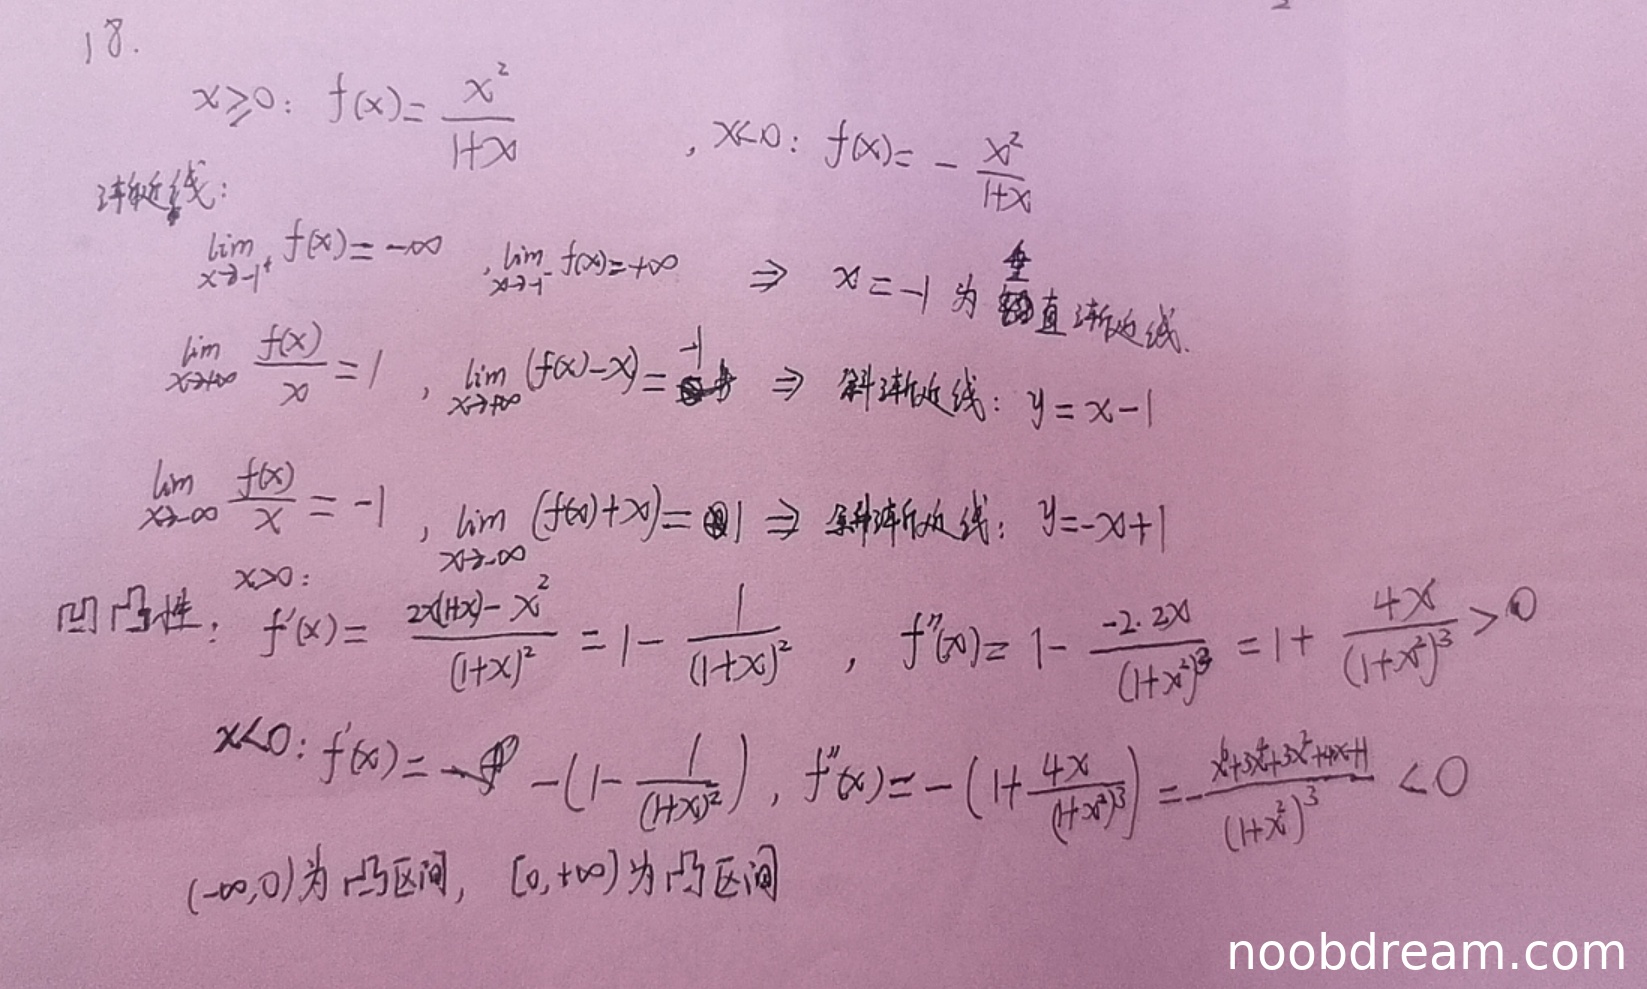 18.
x≥0: f(x)= x²/(1+x) , x<0: f(x)= - x²/(1+x)
渐近线:
lim x→-1⁺ f(x)=-∞ , lim x→-1⁻ f(x)=+∞ ⇒ x=-1 为垂直渐近线.
lim x→+∞ f(x)/x =1 , lim x→+∞ (f(x)-x)= -1 ⇒ 斜渐近线: y=x-1
lim x→-∞ f(x)/x = -1 , lim x→-∞ (f(x)+x)= 1 ⇒ 斜渐近线: y=-x+1
凹凸性: x>0: f'(x)= (2x(1+x)-x²)/(1+x)² = 1- 1/(1+x)² , f''(x)= 1- (-2·2x)/(1+x²)³ = 1+ 4x/(1+x²)³ >0
x<0: f'(x)= -(1- 1/(1+x)²) , f''(x)= -(1+ 4x/(1+x²)³) = - (x⁶+3x⁴+3x²+4x+1)/(1+x²)³ <0
(-∞,0)为凸区间, [0,+∞)为凸区间
noobdream.com